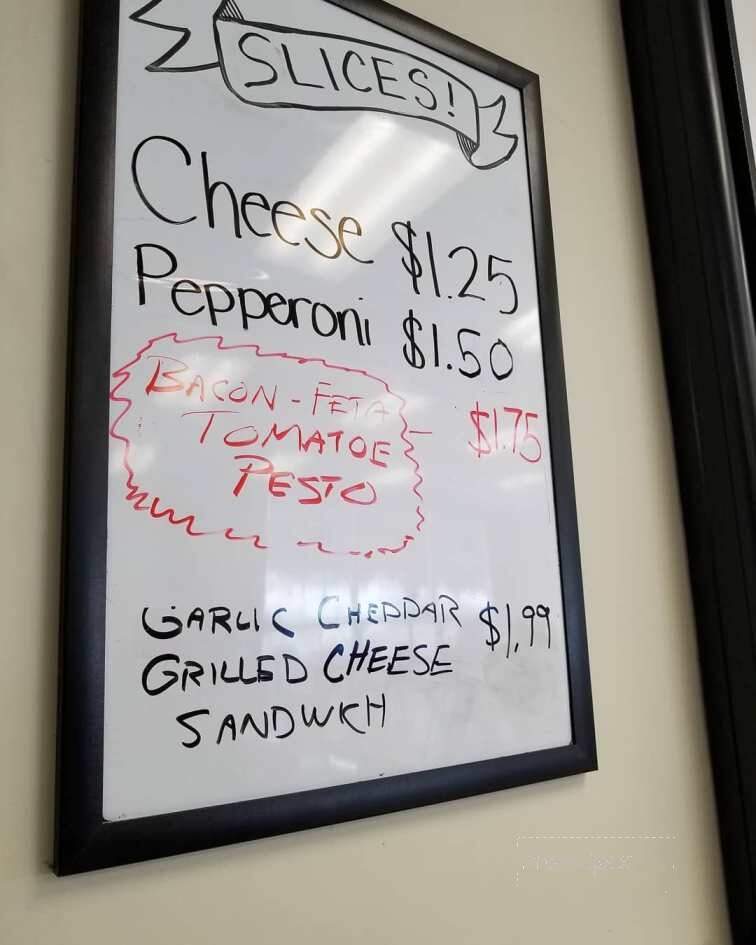 SLICES!
Cheese $1.25
Pepperoni $1.50
BACON - FETA
TOMATOE
PESTO
$1.75
GARLIC CHEDDAR $1.99
GRILLED CHEESE
SANDWICH